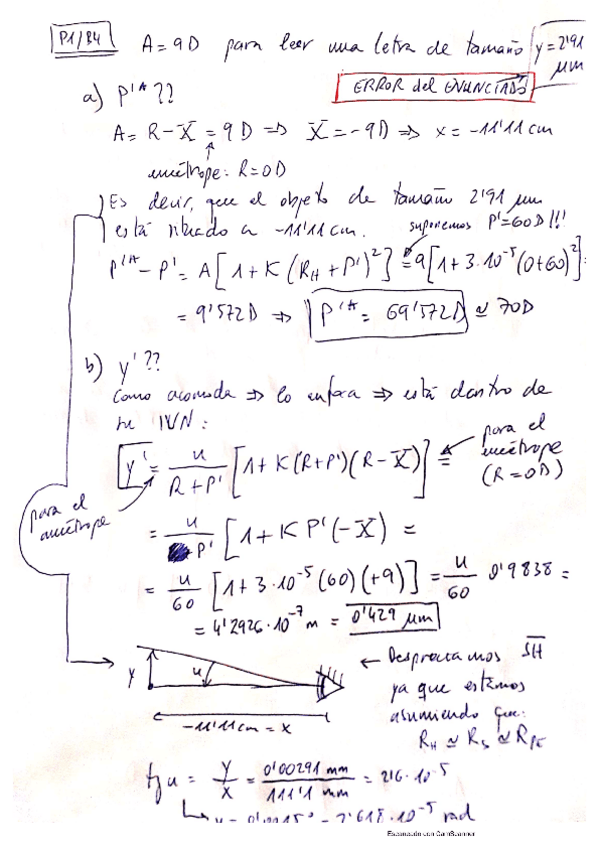 P1/B4 A = 9D para leer una letra de tamaño y = 2'91 μm
ERROR del ENUNCIADO
a) P'ᴬ ??
A = R - X̄ = 9D ⇒ X̄ = -9D ⇒ x = -11'11 cm
emétrope: R = 0D
Es decir, que el objeto de tamaño 2'91 μm
está situado a -11'11 cm. suponemos P' = 60D!!!
P'ᴬ - P' = A[1 + K(R_H + P')²] = 9[1 + 3·10⁻⁵(0+60)²] =
= 9'572D ⇒ P'ᴬ = 69'572D ≃ 70D
b) y' ??
Como acomoda ⇒ lo enfoca ⇒ está dentro de
su IVN:
y' = u/(R+P') [1 + K(R+P')(R-X̄)] =
para el emétrope (R = 0D)
para el amétrope
= u/P' [1 + K P'(-X̄) =
= u/60 [1 + 3·10⁻⁵(60)(+9)] = u/60 0'9838 =
= 4'2926·10⁻⁷ m = 0'429 μm
y u
← Despreciamos S̄H̄
ya que estamos
asumiendo que:
R_H ≃ R_S ≃ R_PE
-11'11 cm = x
tg u = y/x = 0'00291 mm/111'1 mm = 2'6·10⁻⁵
2'618·10⁻⁵ rad
Escaneado con CamScanner